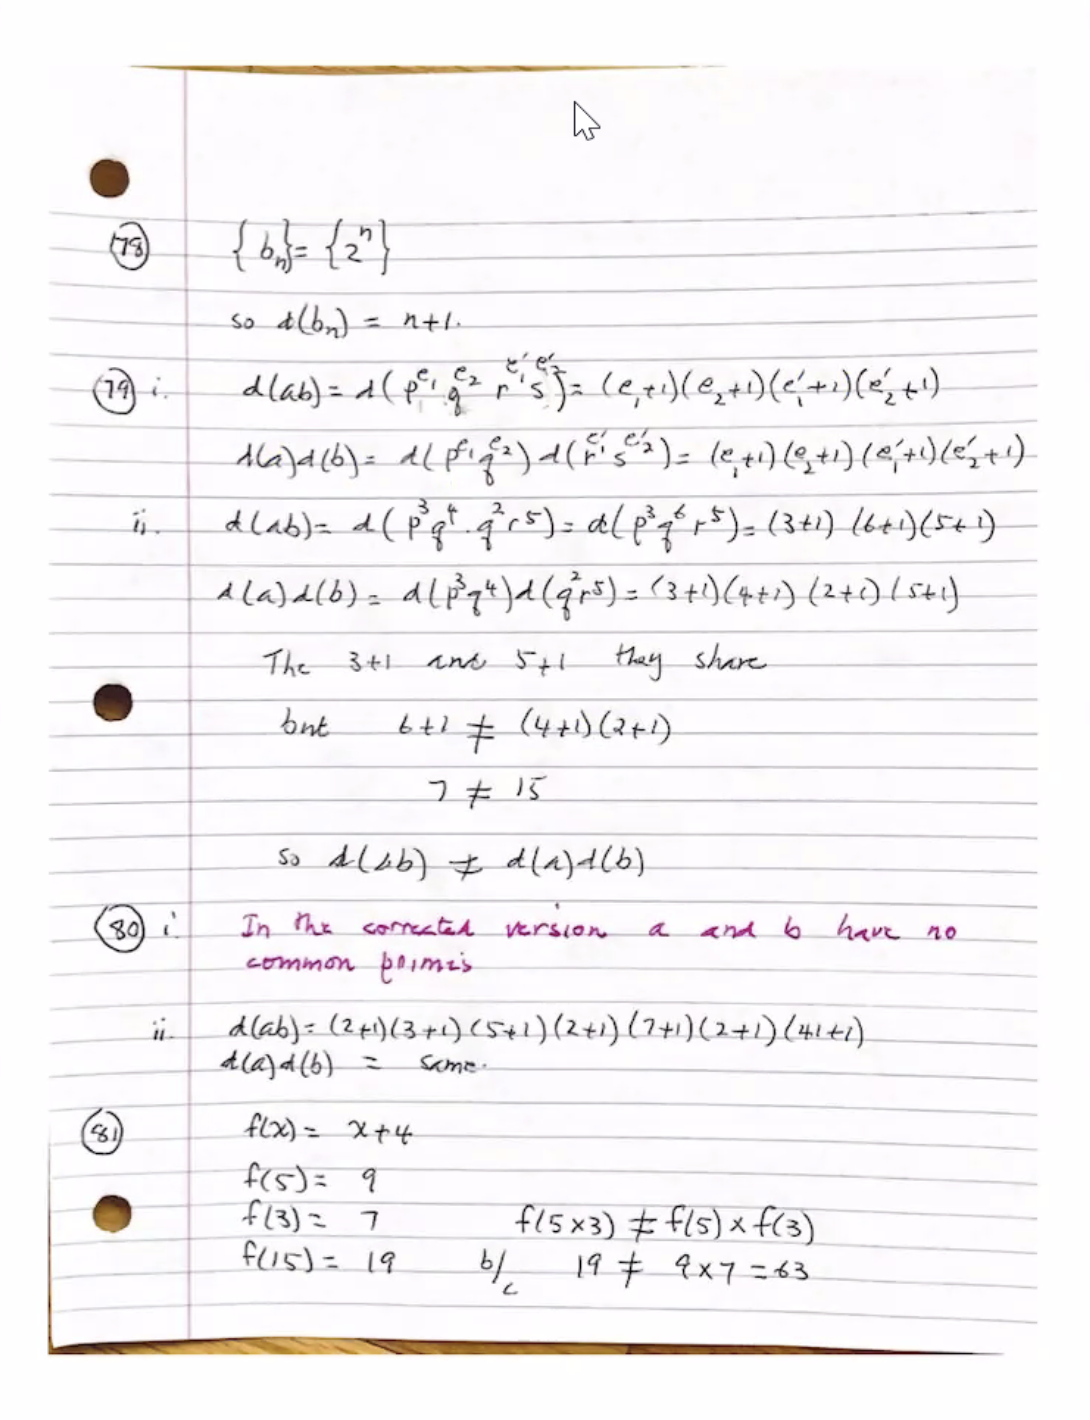 78 {bₙ} = {2ⁿ}
so d(bₙ) = n+1.
79 i. d(ab) = d(p^e₁ q^e₂ r^e₁′ s^e₂′) = (e₁+1)(e₂+1)(e₁′+1)(e₂′+1)
d(a)d(b) = d(p^e₁ q^e₂) d(r^e₁′ s^e₂′) = (e₁+1)(e₂+1)(e₁′+1)(e₂′+1)
ii. d(ab) = d(p³q⁴.q²r⁵) = d(p³q⁶r⁵) = (3+1)(6+1)(5+1)
d(a)d(b) = d(p³q⁴)d(q²r⁵) = (3+1)(4+1)(2+1)(5+1)
The 3+1 and 5+1 they share
but 6+1 ≠ (4+1)(2+1)
7 ≠ 15
so d(ab) ≠ d(a)d(b)
80 i. In the corrected version a and b have no
common primes
ii. d(ab) = (2+1)(3+1)(5+1)(2+1)(7+1)(2+1)(41+1)
d(a)d(b) = same.
81 f(x) = x+4
f(5) = 9
f(3) = 7 f(5×3) ≠ f(5)×f(3)
f(15) = 19 b/c 19 ≠ 9×7=63